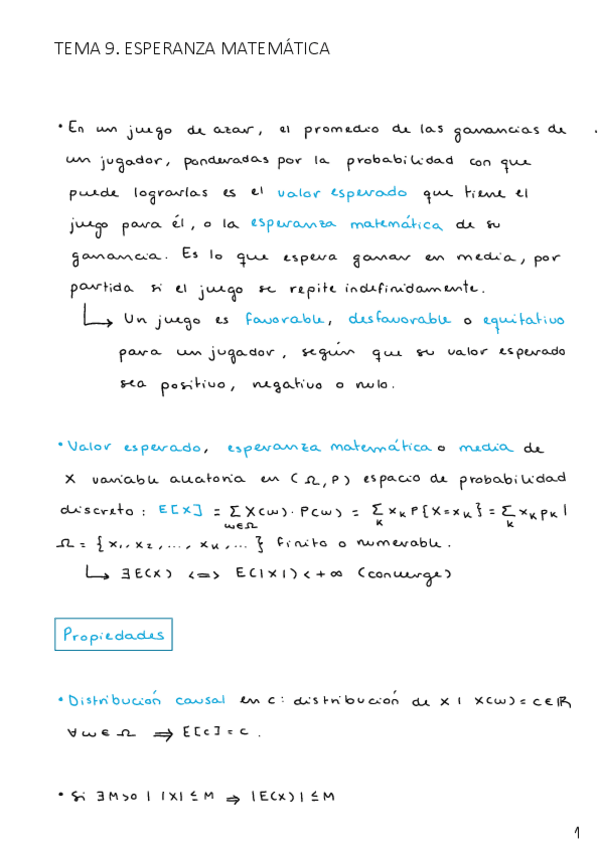 TEMA 9. ESPERANZA MATEMÁTICA
• En un juego de azar, el promedio de las ganancias de
un jugador, ponderadas por la probabilidad con que
puede lograrlas es el valor esperado que tiene el
juego para él, o la esperanza matemática de su
ganancia. Es lo que espera ganar en media, por
partida si el juego se repite indefinidamente.
↳ Un juego es favorable, desfavorable o equitativo
para un jugador, según que su valor esperado
sea positivo, negativo o nulo.
• Valor esperado, esperanza matemática o media de
X variable aleatoria en (Ω, P) espacio de probabilidad
discreto: E[X] = Σ_{ω∈Ω} X(ω)·P(ω) = Σ_k x_k P{X=x_k} = Σ_k x_k p_k |
Ω = {x₁, x₂, ..., x_k, ...} finito o numerable.
↳ ∃E(X) <=> E(|X|) < +∞ (converge)
Propiedades
• Distribución causal en c: distribución de X | X(ω) = c ∈ ℝ
∀ω ∈ Ω ⇒ E[c] = c.
• Si ∃M>0 | |X| ≤ M ⇒ |E(X)| ≤ M
1